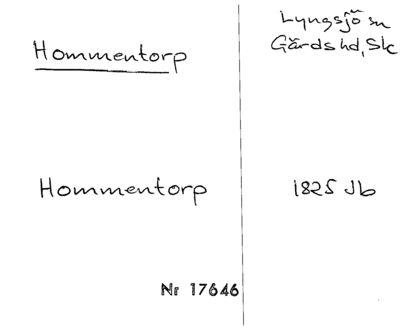 Hommentorp
Lyngsjö sn
Gärds hd, Sk
Hommentorp
1825 Jb
Nr 17646